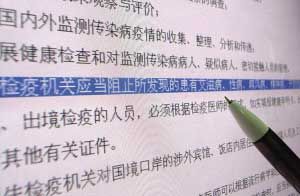 察与评价；
国内外监测传染病疫情的收集、整理、分析和传递；
展健康检查和对监测传染病病人、疑似病人、密切接触人员的管理。
检疫机关应当阻止所发现的患有艾滋病、性病、麻风病、精神病
、出境检疫的人员，必须根据检疫医师的
其他有关证件。
生检疫机关对国境口岸的涉外宾馆、饭店内居住